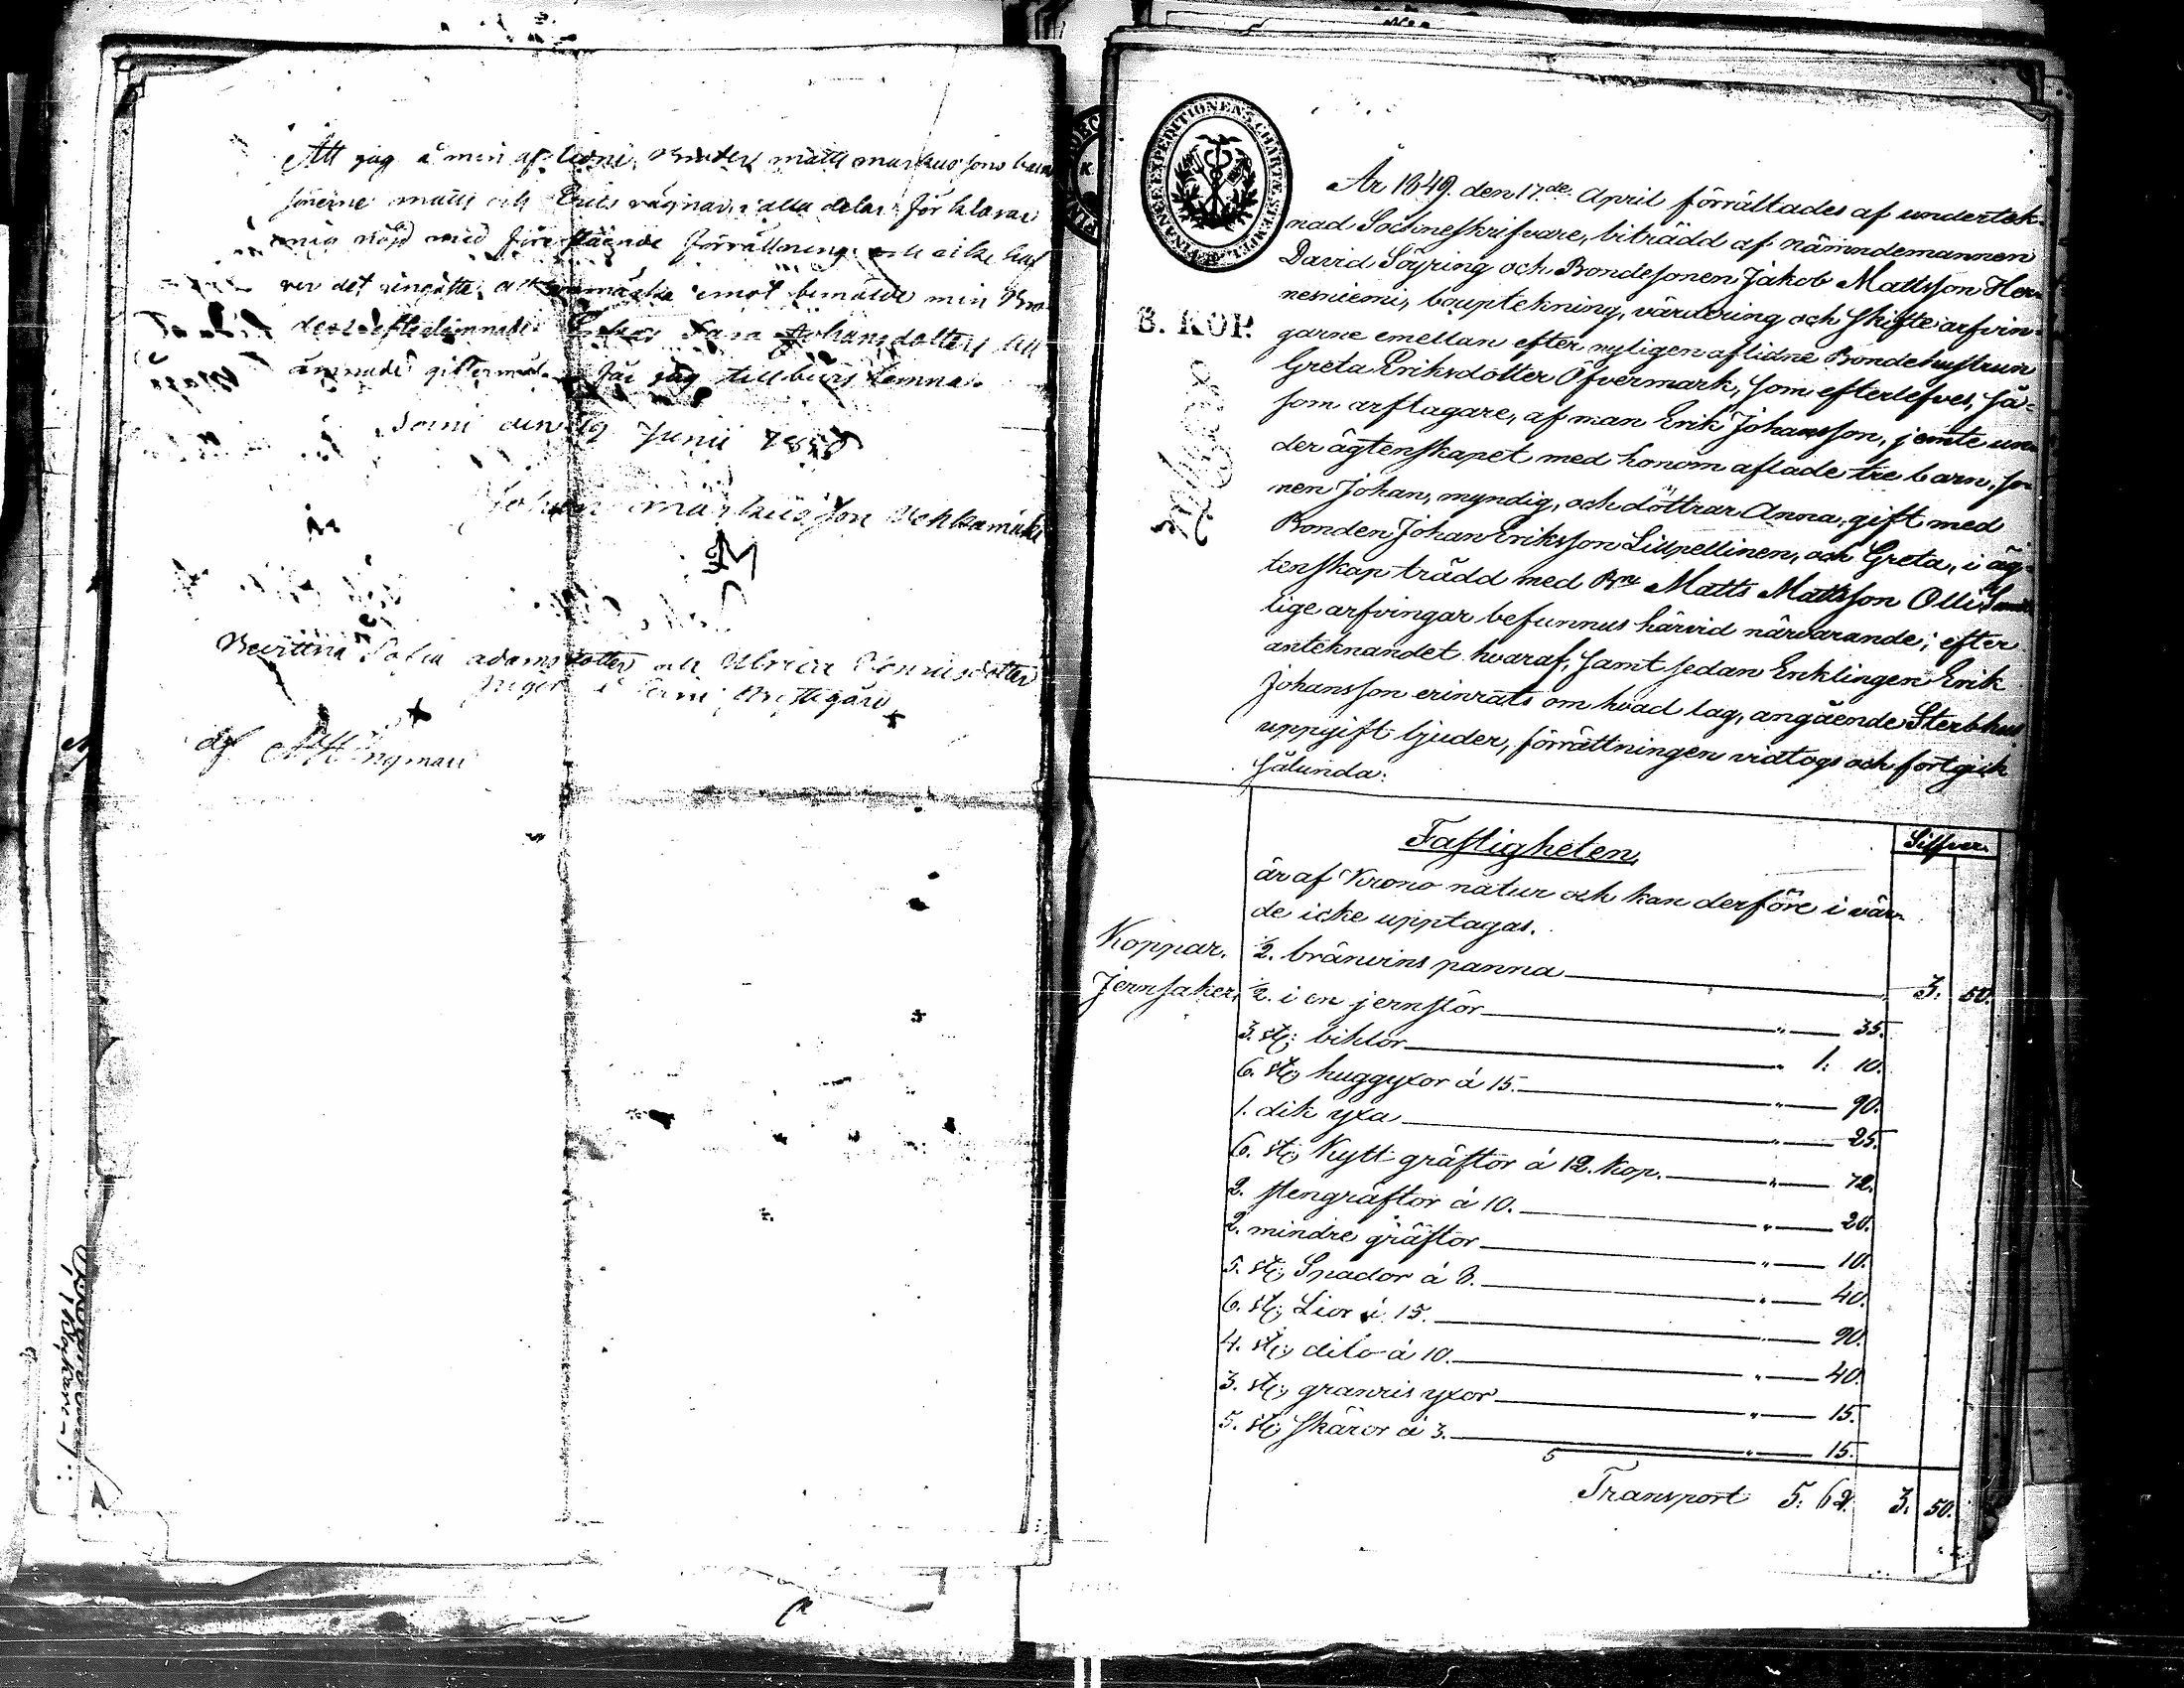 Att jag å min aflidne Broders matts markus sons barn
sönerne matts och Eriks vägnar i alla delar förklarar
mig nöjd med föreståénde förrättning och icke haf
ver det ringaste att anmärka emot bemälde min Bro
ders efterlämnade Enka Sara Johansdotters till
ämnade giftermål får jag till bevis lemna.
Soini den 19 Junii 1850
Johan markusson Vehkamäki
M
Bevittna Sofia adamsdotter och Ulrica
pigor i Soini
af Nyman
FINANCE EXPEDITIONENS CHARTÆ STEMPEL
8. KOP.
År 1849. den 17.de April förrättades af underteck-
nad Sockneskrifvare, biträdd af nämndemannen
David Söyring och Bondesonen Jakob Mattsson Her-
nesniemi, bouptekning, värdering och skifte arfvin-
garne emellan efter nyligen aflidne Bondehustrun
Greta Eriksdotter Öfvermark, som efterlefves, så-
som arftagare, af man Erik Johansson, jemte un-
der ägtenskapet med honom aflade tre barn, so-
nen Johan, myndig, och döttrar Anna, gift med
Bonden Johan Eriksson Liupellinen, och Greta, i äg-
tenskap trädd med Bn Matts Mattsson Olli. Samt-
lige arfvingar befunnus härvid närvarande; efter
anteknandet hvaraf, samt sedan Enklingen Erik
Johansson erinrats om hvad lag, angående Sterbhus
uppgift bjuder, förrättningen vidtogs och fortgick
sålunda:
Silfver.
Fastigheten,
är af Krono natur och kan derföre i vär-
de icke upptagas.
Koppar. 1/2. bränvins panna 3. 50.
Jernsaker, 1/2. i en jernstör " 35.
3. st; biktor " 1. 10.
6. st; huggyxor á 15. " 90.
1. dik yxa " 25.
6. st; Kytt gräftor á 12. Kop. " 72.
2. stengräftor á 10. " 20.
2. mindre gräftor " 10.
5. st; Spador á 8. " 40.
6. st; Lior á 15. " 90.
4. st; dito á 10. " 40.
3. st; granris yxor " 15.
5. st; skäror á 3. " 15.
Transport 5. 62. 3. 50.